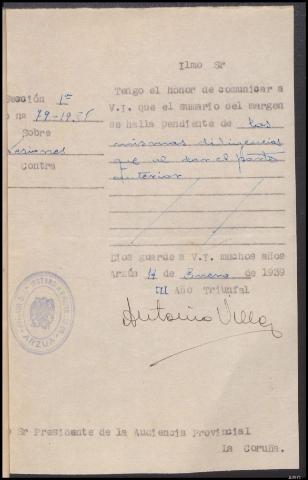 Ilmo Sr
Tengo el honor de comunicar a
V.I. que el sumario del margen
se halla pendiente de las
mismas diligencias
que al dar el parte
anterior
Sección 1ª
79-1935
Sobre
Lesiones
Contra
Dios guarde a V.I. muchos años
Arzúa 14 de Enero de 1939
III Año Triunfal
Antonio Villa
ARZUA
Sr Presidente de la Audiencia Provincial
La Coruña.